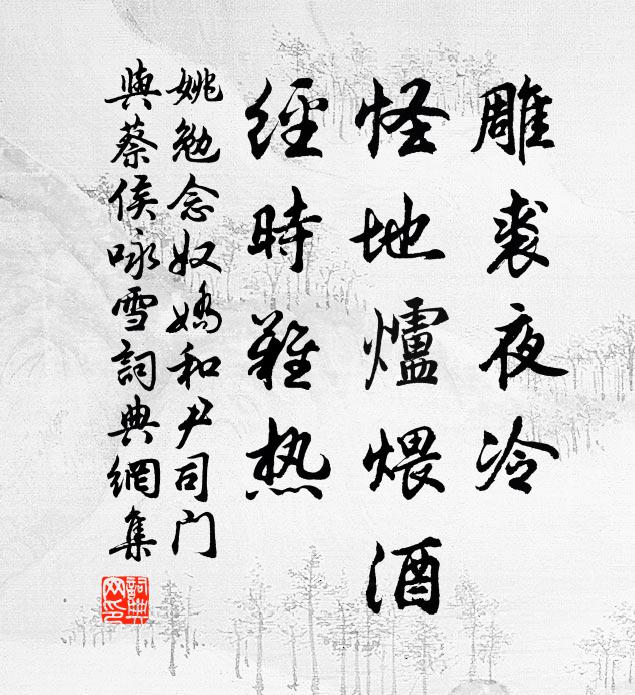 雕裘夜冷
怪地爐煨酒
經時難热
姚勉念奴嬌和尹司门
與蔡侯咏雪詞典網集
詞典
网印